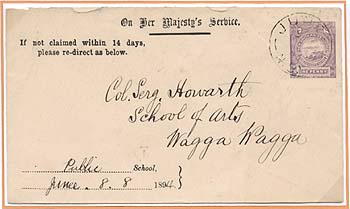 On Her Majesty's Service.
If not claimed within 14 days,
please re-direct as below.
ONE PENNY
Col. Serg. Howarth
School of Arts
Wagga Wagga
Public School,
Junee 8.8 1894